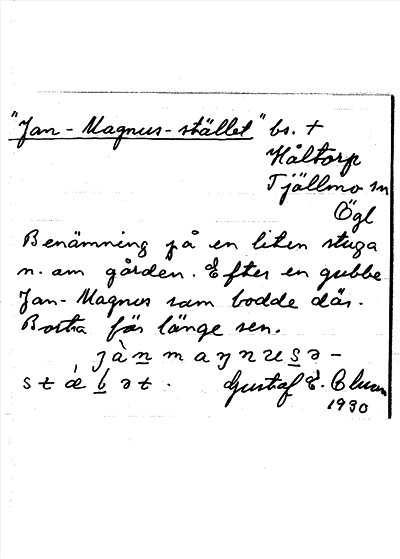 "Jan-Magnus-stället" bs. +
Håltorp
Tjällmo sn
Ögl
Benämning på en liten stuga
n. om gården. Efter en gubbe
Jan-Magnus som bodde där.
Borta för länge sen.
jànmaŋnɯsə-
stǽbət. Gustaf E.
1930